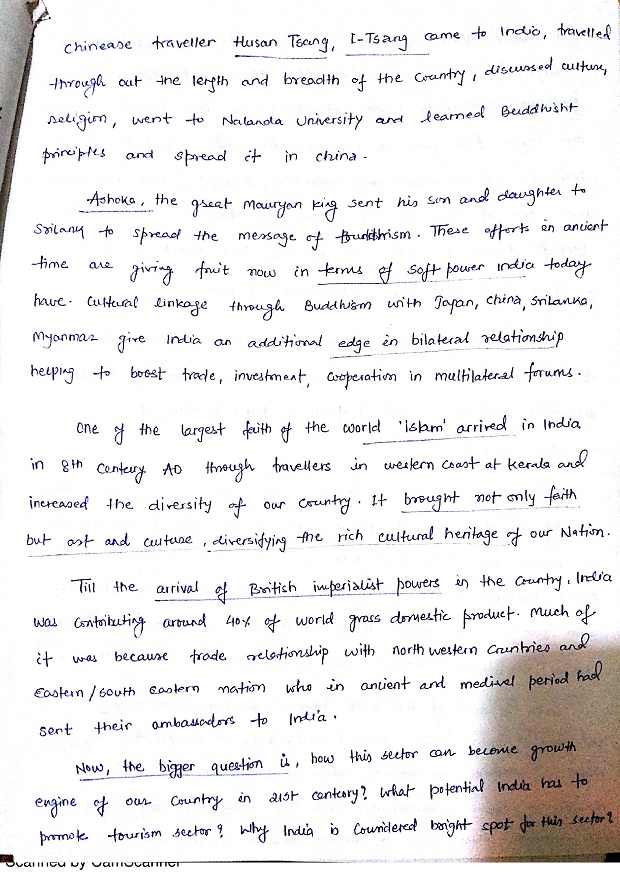 Chinease traveller Husan Tsang, I-Tsang came to India, travelled
through out the length and breadth of the country, discussed culture,
religion, went to Nalanda University and learned Buddhisht
principles and spread it in china.
Ashoka, the great Mauryan king sent his son and daughter to
Srilanka to spread the message of Buddhism. These efforts in ancient
time are giving fruit now in terms of soft power India today
have. Cultural linkage through Buddhism with Japan, China, Srilanka,
Myanmar give India an additional edge in bilateral relationship
helping to boost trade, investment, cooperation in multilateral forums.
One of the largest faith of the world 'islam' arrived in India
in 8th Century AD through travellers in western coast at Kerala and
increased the diversity of our country. It brought not only faith
but art and culture, diversifying the rich cultural heritage of our Nation.
Till the arrival of British imperialist powers in the country, India
was contributing around 40% of world gross domestic product. Much of
it was because trade relationship with north western countries and
Eastern / South Eastern nation who in ancient and medival period had
sent their ambassadors to India.
Now, the bigger question is, how this sector can become growth
engine of our Country in 21st century? What potential India has to
promote tourism sector? Why India is Considered bright spot for this sector?
Scanned by CamScanner